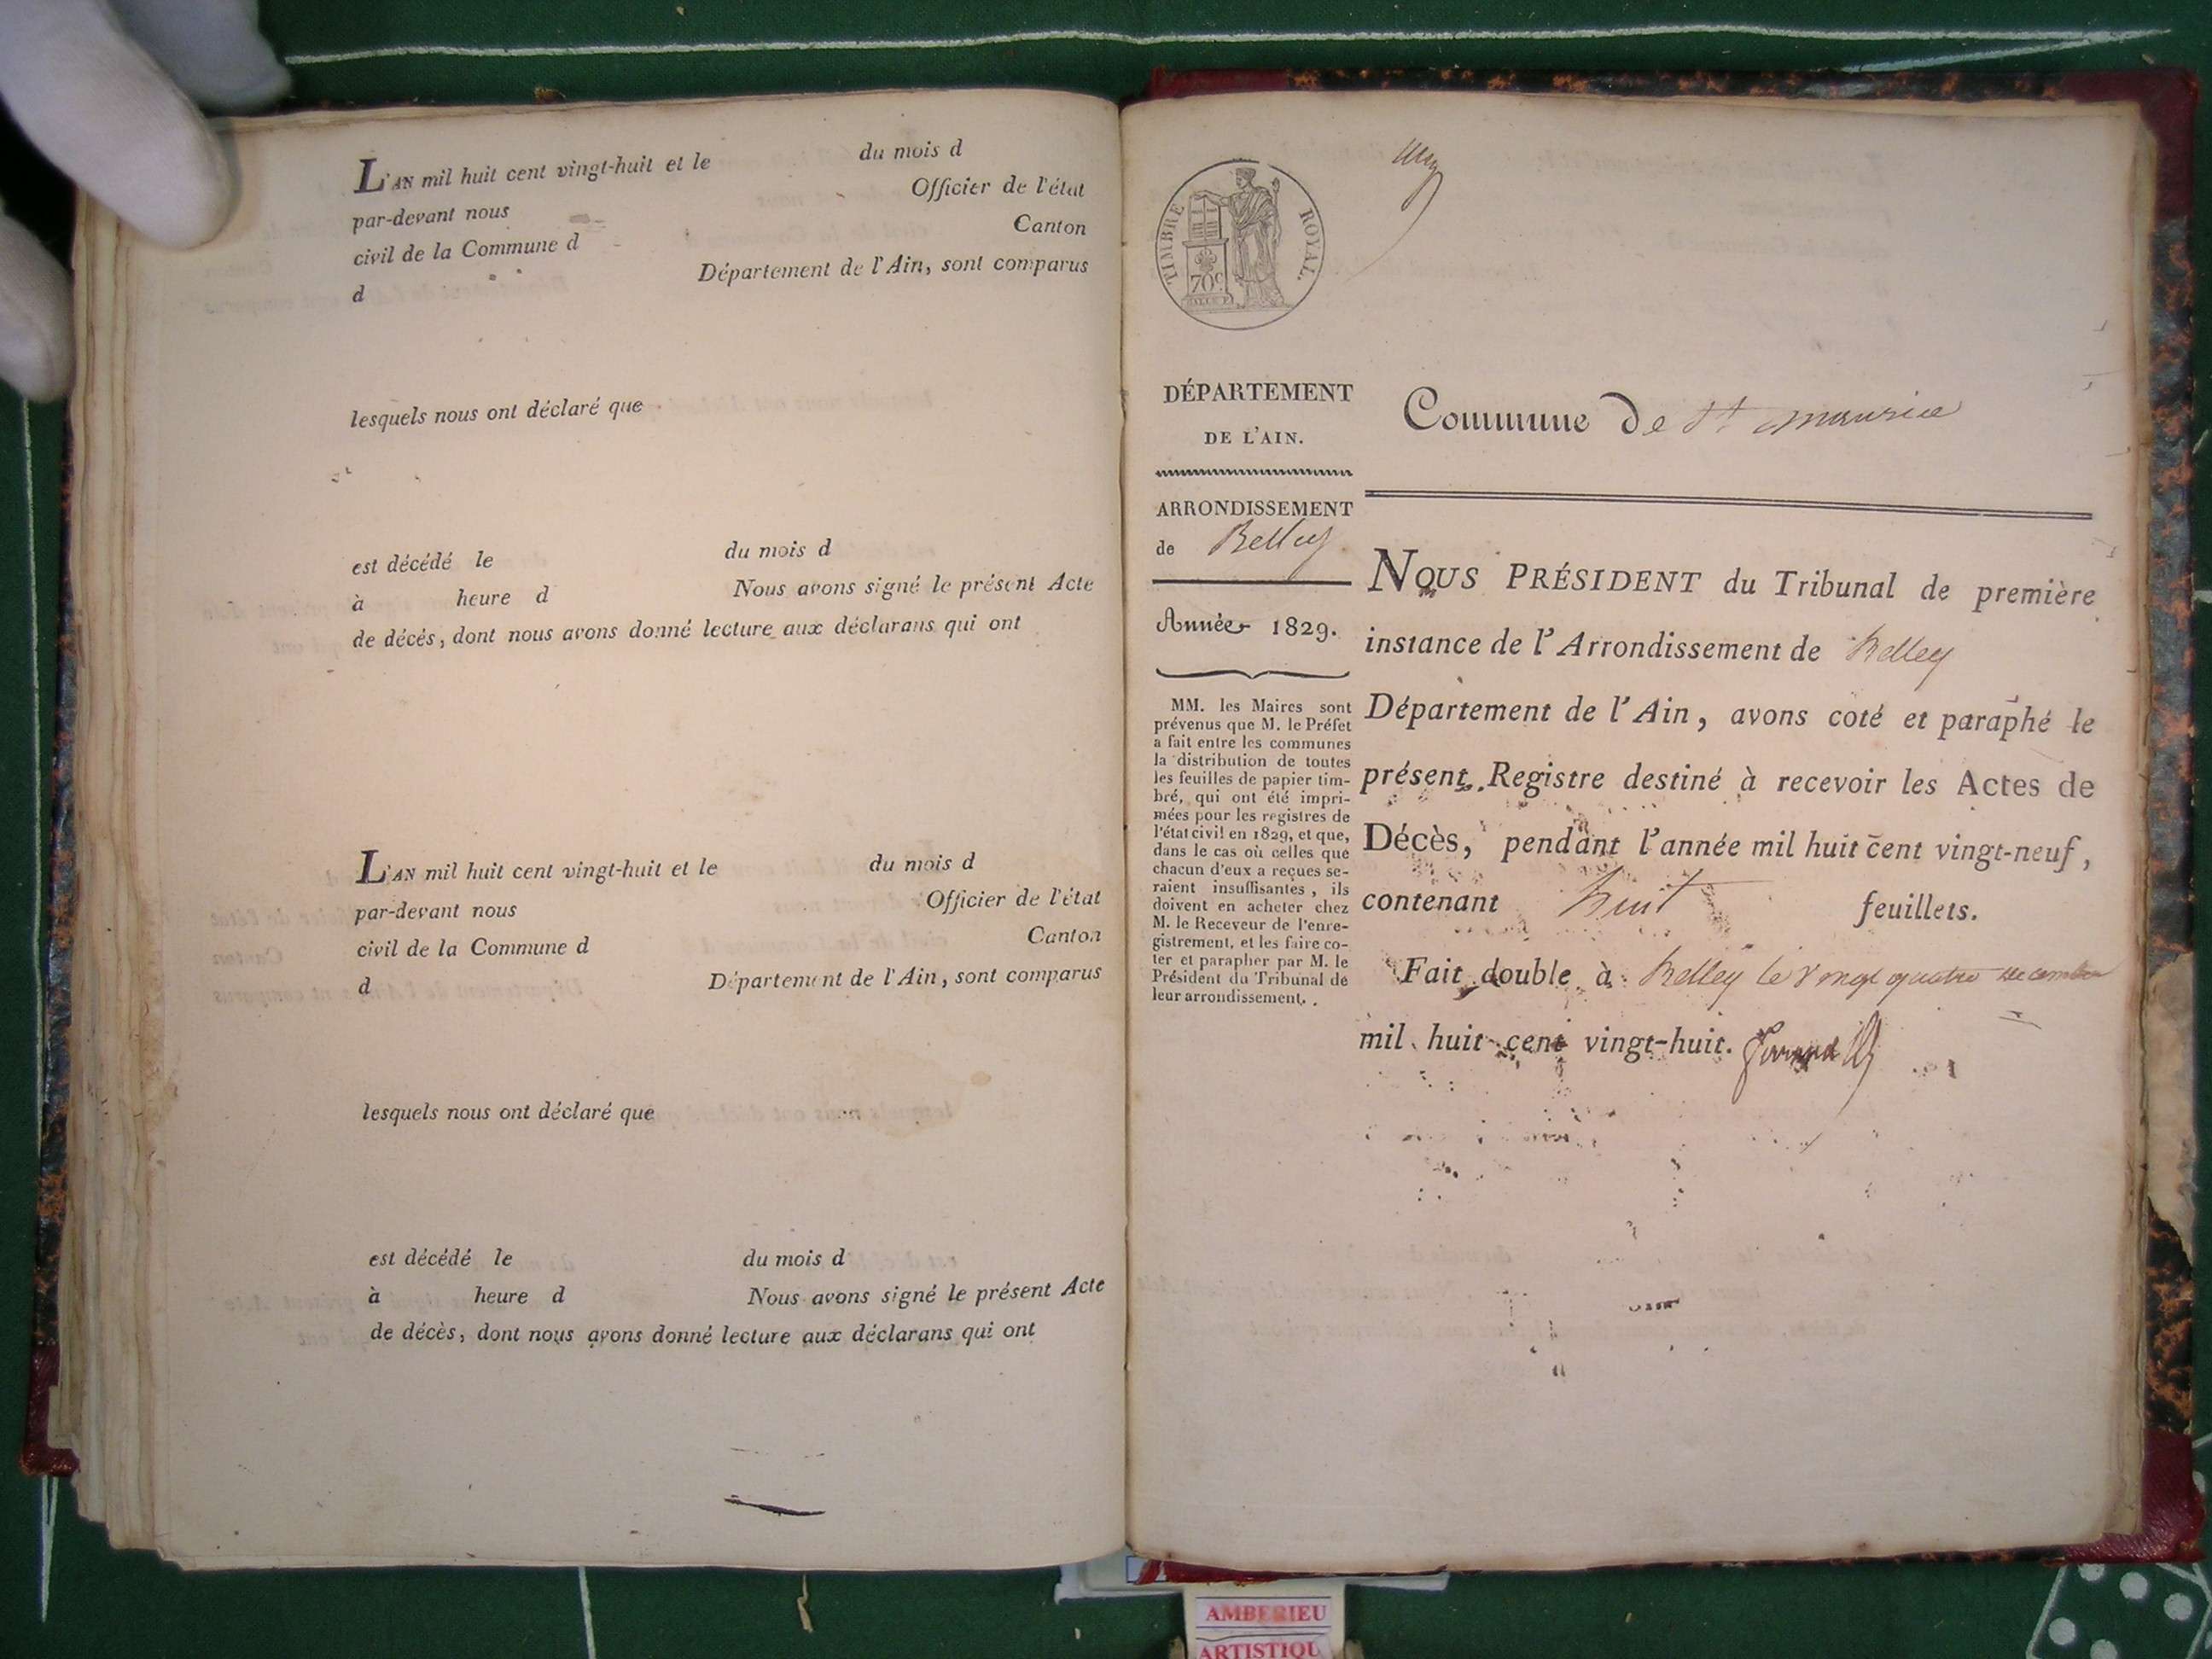 L'AN mil huit cent vingt-huit et le du mois d
par-devant nous Officier de l'état
civil de la Commune d Canton
d Département de l'Ain, sont comparus
lesquels nous ont déclaré que
est décédé le du mois d
à heure d Nous avons signé le présent Acte
de décès, dont nous avons donné lecture aux déclarans qui ont
L'AN mil huit cent vingt-huit et le du mois d
par-devant nous Officier de l'état
civil de la Commune d Canton
d Département de l'Ain, sont comparus
lesquels nous ont déclaré que
est décédé le du mois d
à heure d Nous avons signé le présent Acte
de décès, dont nous avons donné lecture aux déclarans qui ont
TIMBRE ROYAL.
70c
DÉPARTEMENT
DE L'AIN.
ARRONDISSEMENT
de Belley
Année 1829.
MM. les Maires sont
prévenus que M. le Préfet
a fait entre les communes
la distribution de toutes
les feuilles de papier tim-
bré, qui ont été impri-
mées pour les registres de
l'état civil en 1829, et que,
dans le cas où celles que
chacun d'eux a reçues se-
raient insuffisantes, ils
doivent en acheter chez
M. le Receveur de l'enre-
gistrement, et les faire co-
ter et parapher par M. le
Président du Tribunal de
leur arrondissement.
Commune De St maurice
NOUS PRÉSIDENT du Tribunal de première
instance de l'Arrondissement de Belley
Département de l'Ain, avons coté et paraphé le
présent Registre destiné à recevoir les Actes de
Décès, pendant l'année mil huit cent vingt-neuf,
contenant huit feuillets.
Fait double à Belley le vingt quatre decembre
mil huit cent vingt-huit.
AMBERIEU
ARTISTIQU